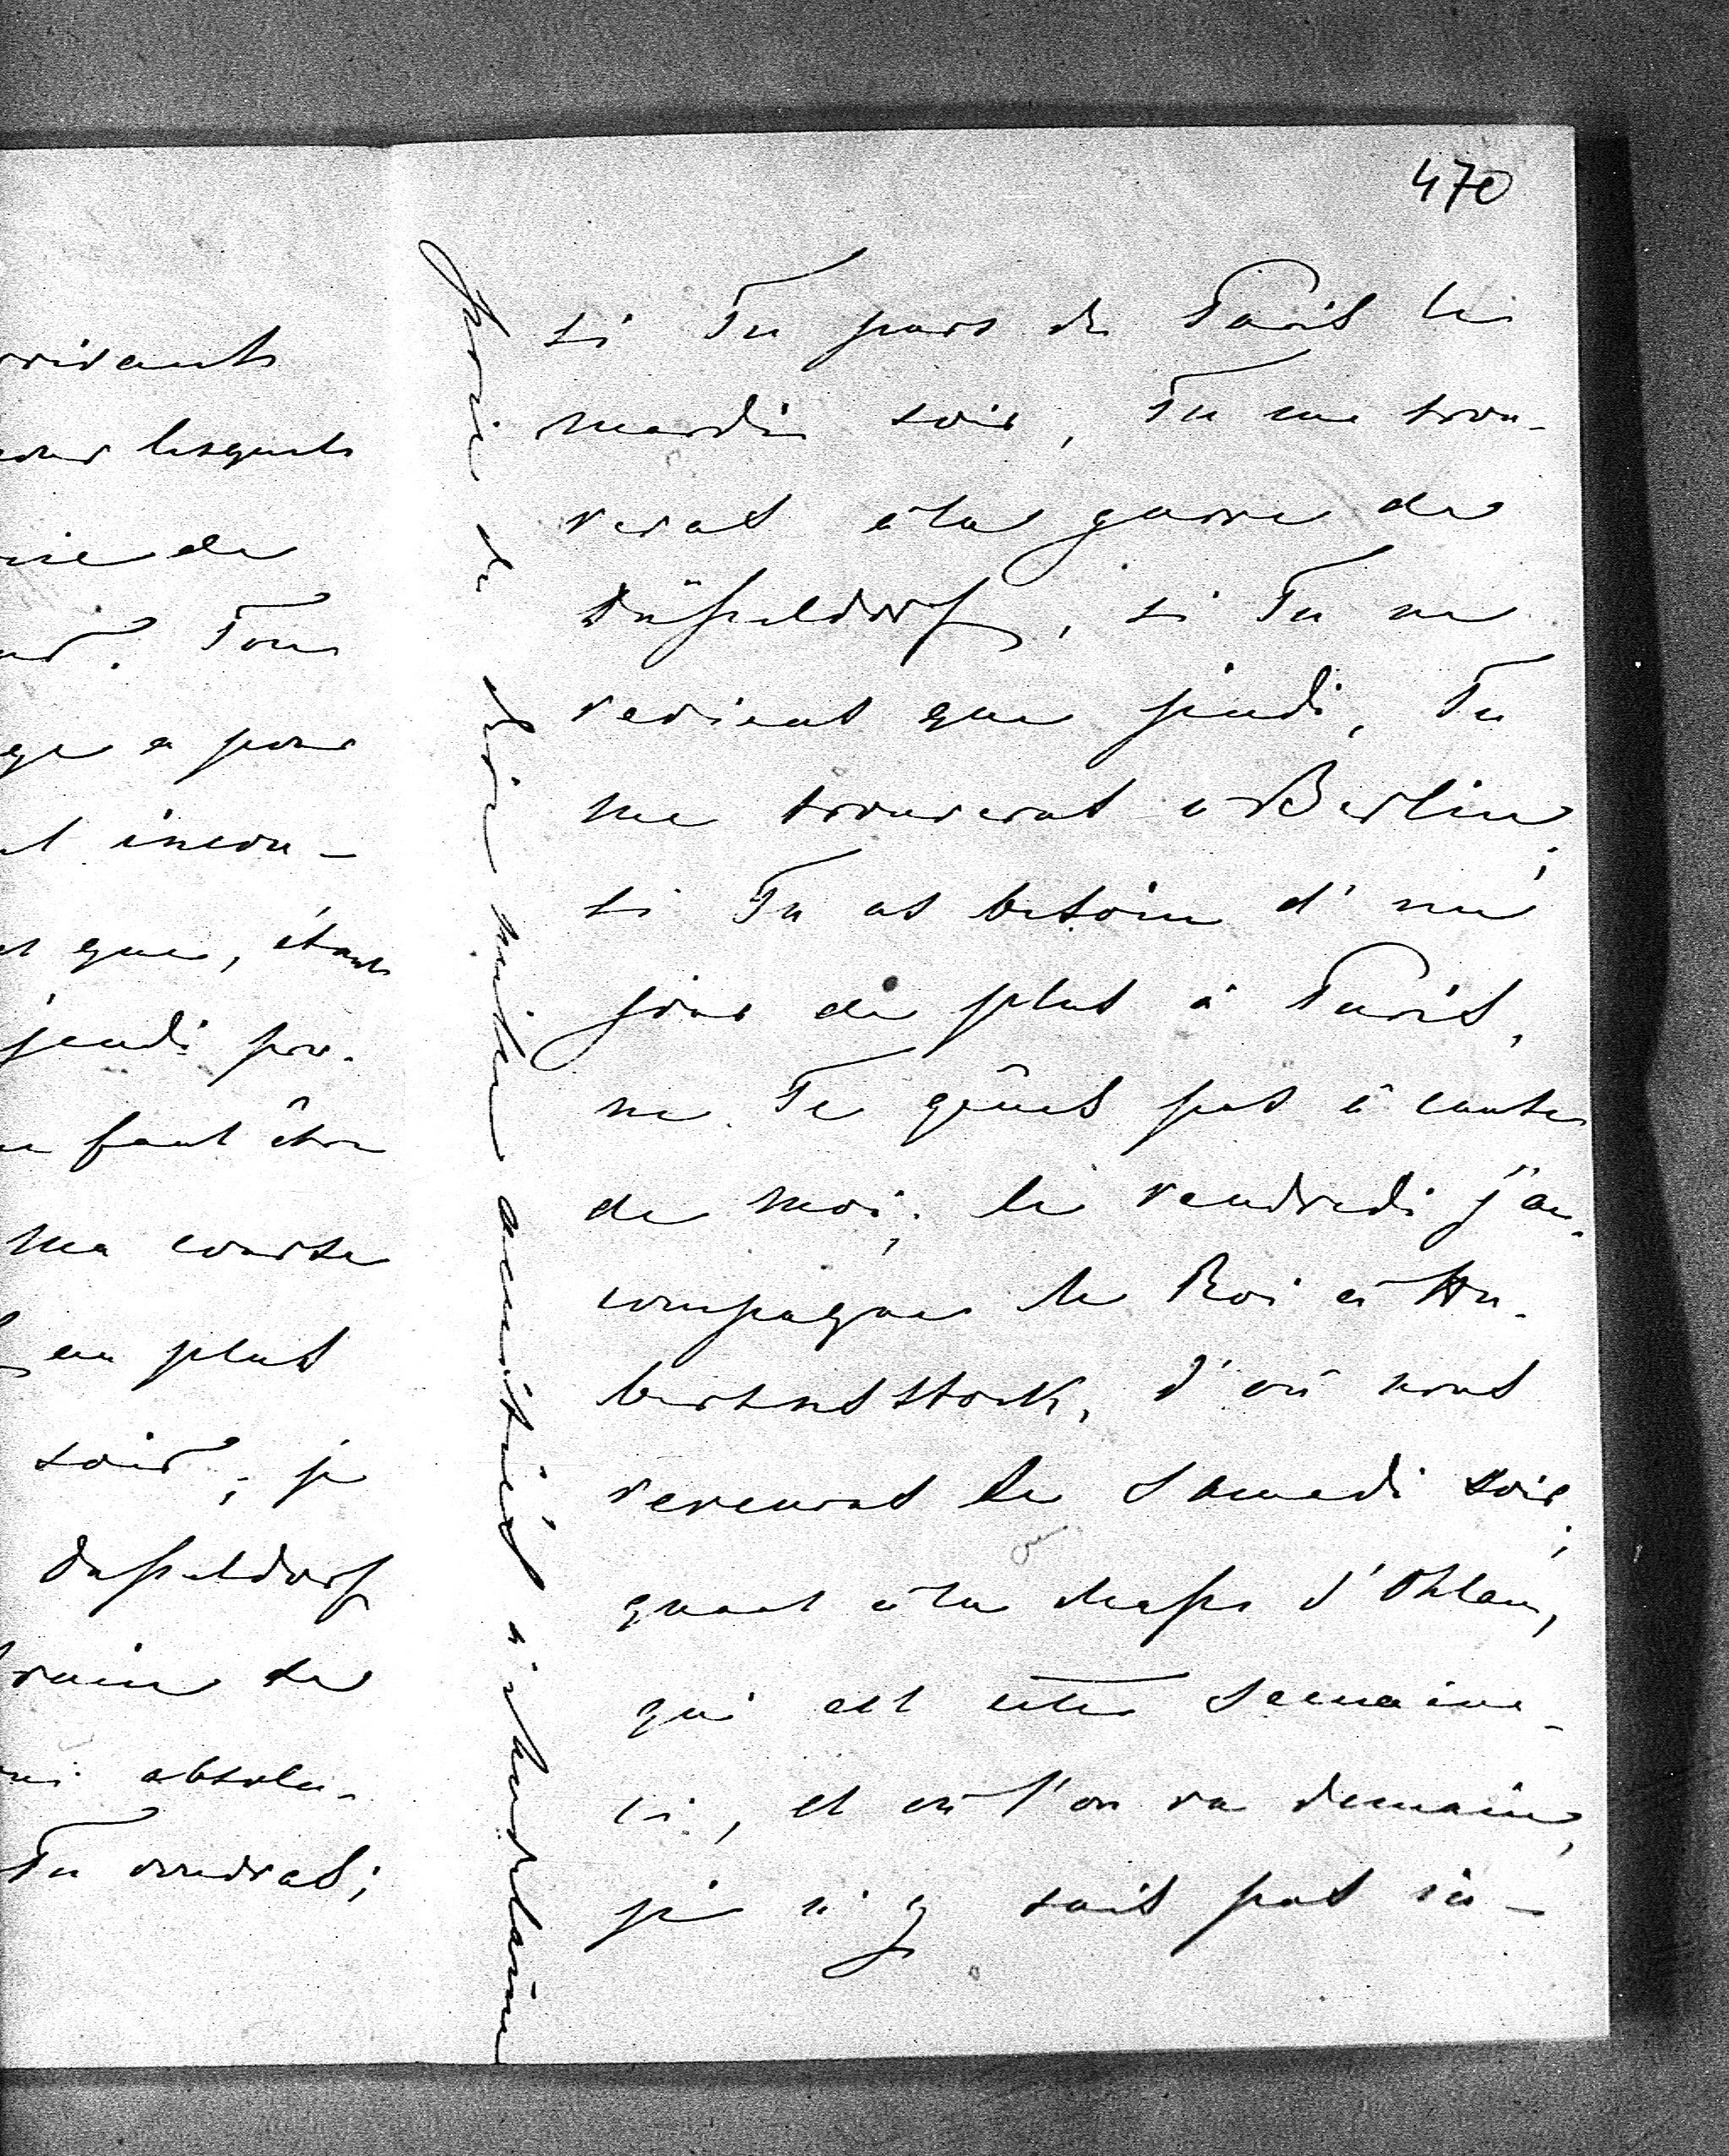 470
si Tu pars de Paris le
mardi soir, Tu me trou-
veras à la garre de
Düsseldorf, si Tu ne
reviens que jeudi, Tu
me trouveras à Berlin;
si Tu as besoin d'un
jour de plus à Paris,
ne Te gênes pas à cause
de moi; le vendredi j'ac-
compagne le Roi à Hu-
bertusstock, d'où nous
revenons le Samedi soir;
quant à la chasse d'Ohlau,
qui est cette semaine-
ci, et où l'on va demain,
je n'y suis pas in-
prie de dire mille amitiés à
rivants
lesquels
de
Tous
a pour
incon-
que, étant
jeudi pro-
faut être
ma course
plus
soir; je
Dusseldorf
absolu-
Tu voudras;